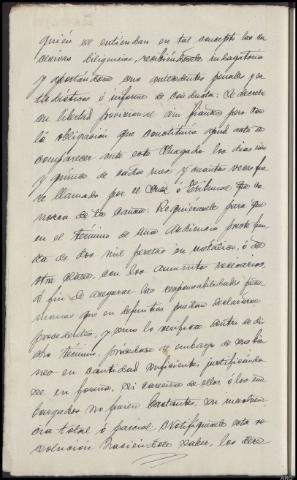 quién se entiendan en tal concepto las su
cesivas diligencias, recibiéndosele indagatoria
y aportándose sus antecedentes penales y es
tadísticos é informe de conducta: Se decreta
su libertad provisional sin fianza pero con
la obligación que constituirá apud acta de
comparecer ante este Juzgado los días uno
y quince de cada mes y cuantas veces fue
re llamado por el Juez o Tribunal que co
nozca de la causa. Requiérasele para que
en el término de una audiencia preste fian
za de dos mil pesetas en metálico, ó de
otra clase, con los aumentos necesarios,
á fin de asegurar las responsabilidades pecu
niarias que en definitiva puedan declararse
procedentes, y como lo verifique dentro de di
cho término, procédase al embargo de
en cantidad suficiente, justificándo
se en forma, si careciere de ellos ó los em
bargados no fuesen bastantes, su insolven
cia total ó parcial. Notifíquesele esta re
solución haciéndole saber los dere